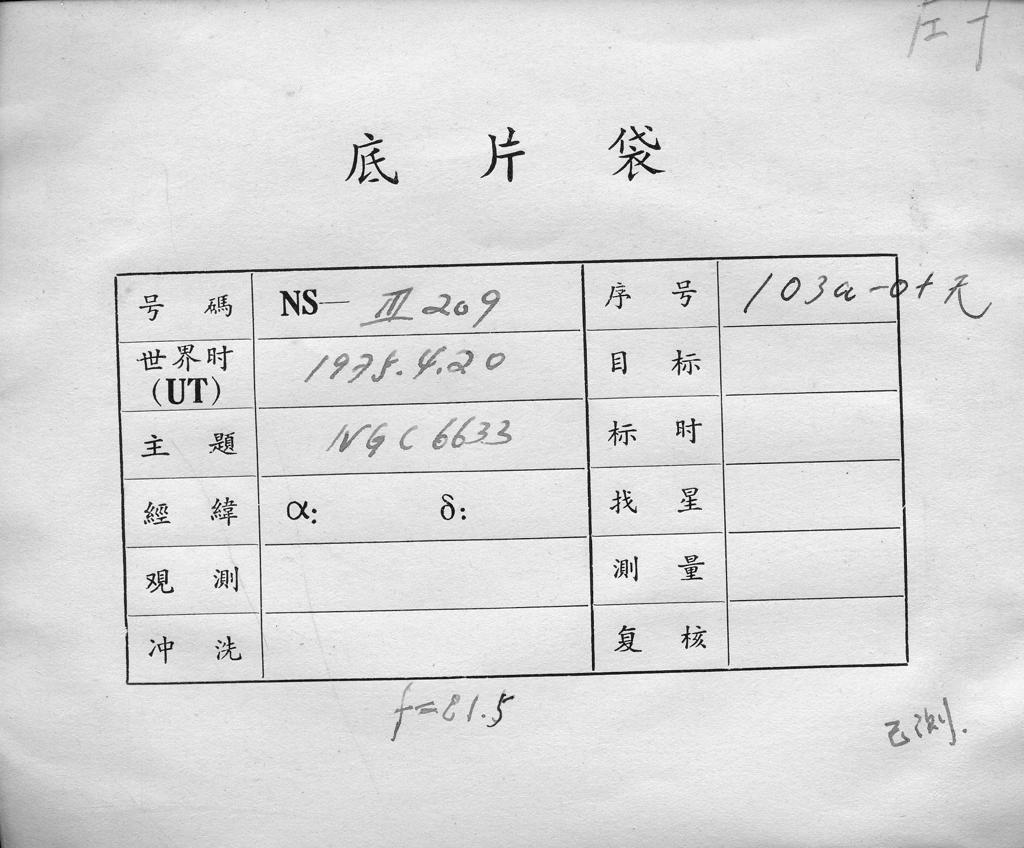 底片袋
号碼 NS— III 209 序号 103a-0+天
世界时(UT) 1975.4.20 目标
主题 NGC 6633 标时
經緯 α: δ: 找星
观測 測量
冲洗 复核
f=81.5
已测.